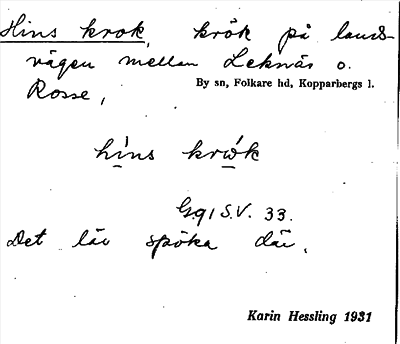 Hins krok, krök på lands-
vägen mellan Leknäs o.
Rosse,
By sn, Folkare hd, Kopparbergs l.
híns krẃk
Gg1 S.V. 33.
Det lär spöka där.
Karin Hessling 1931